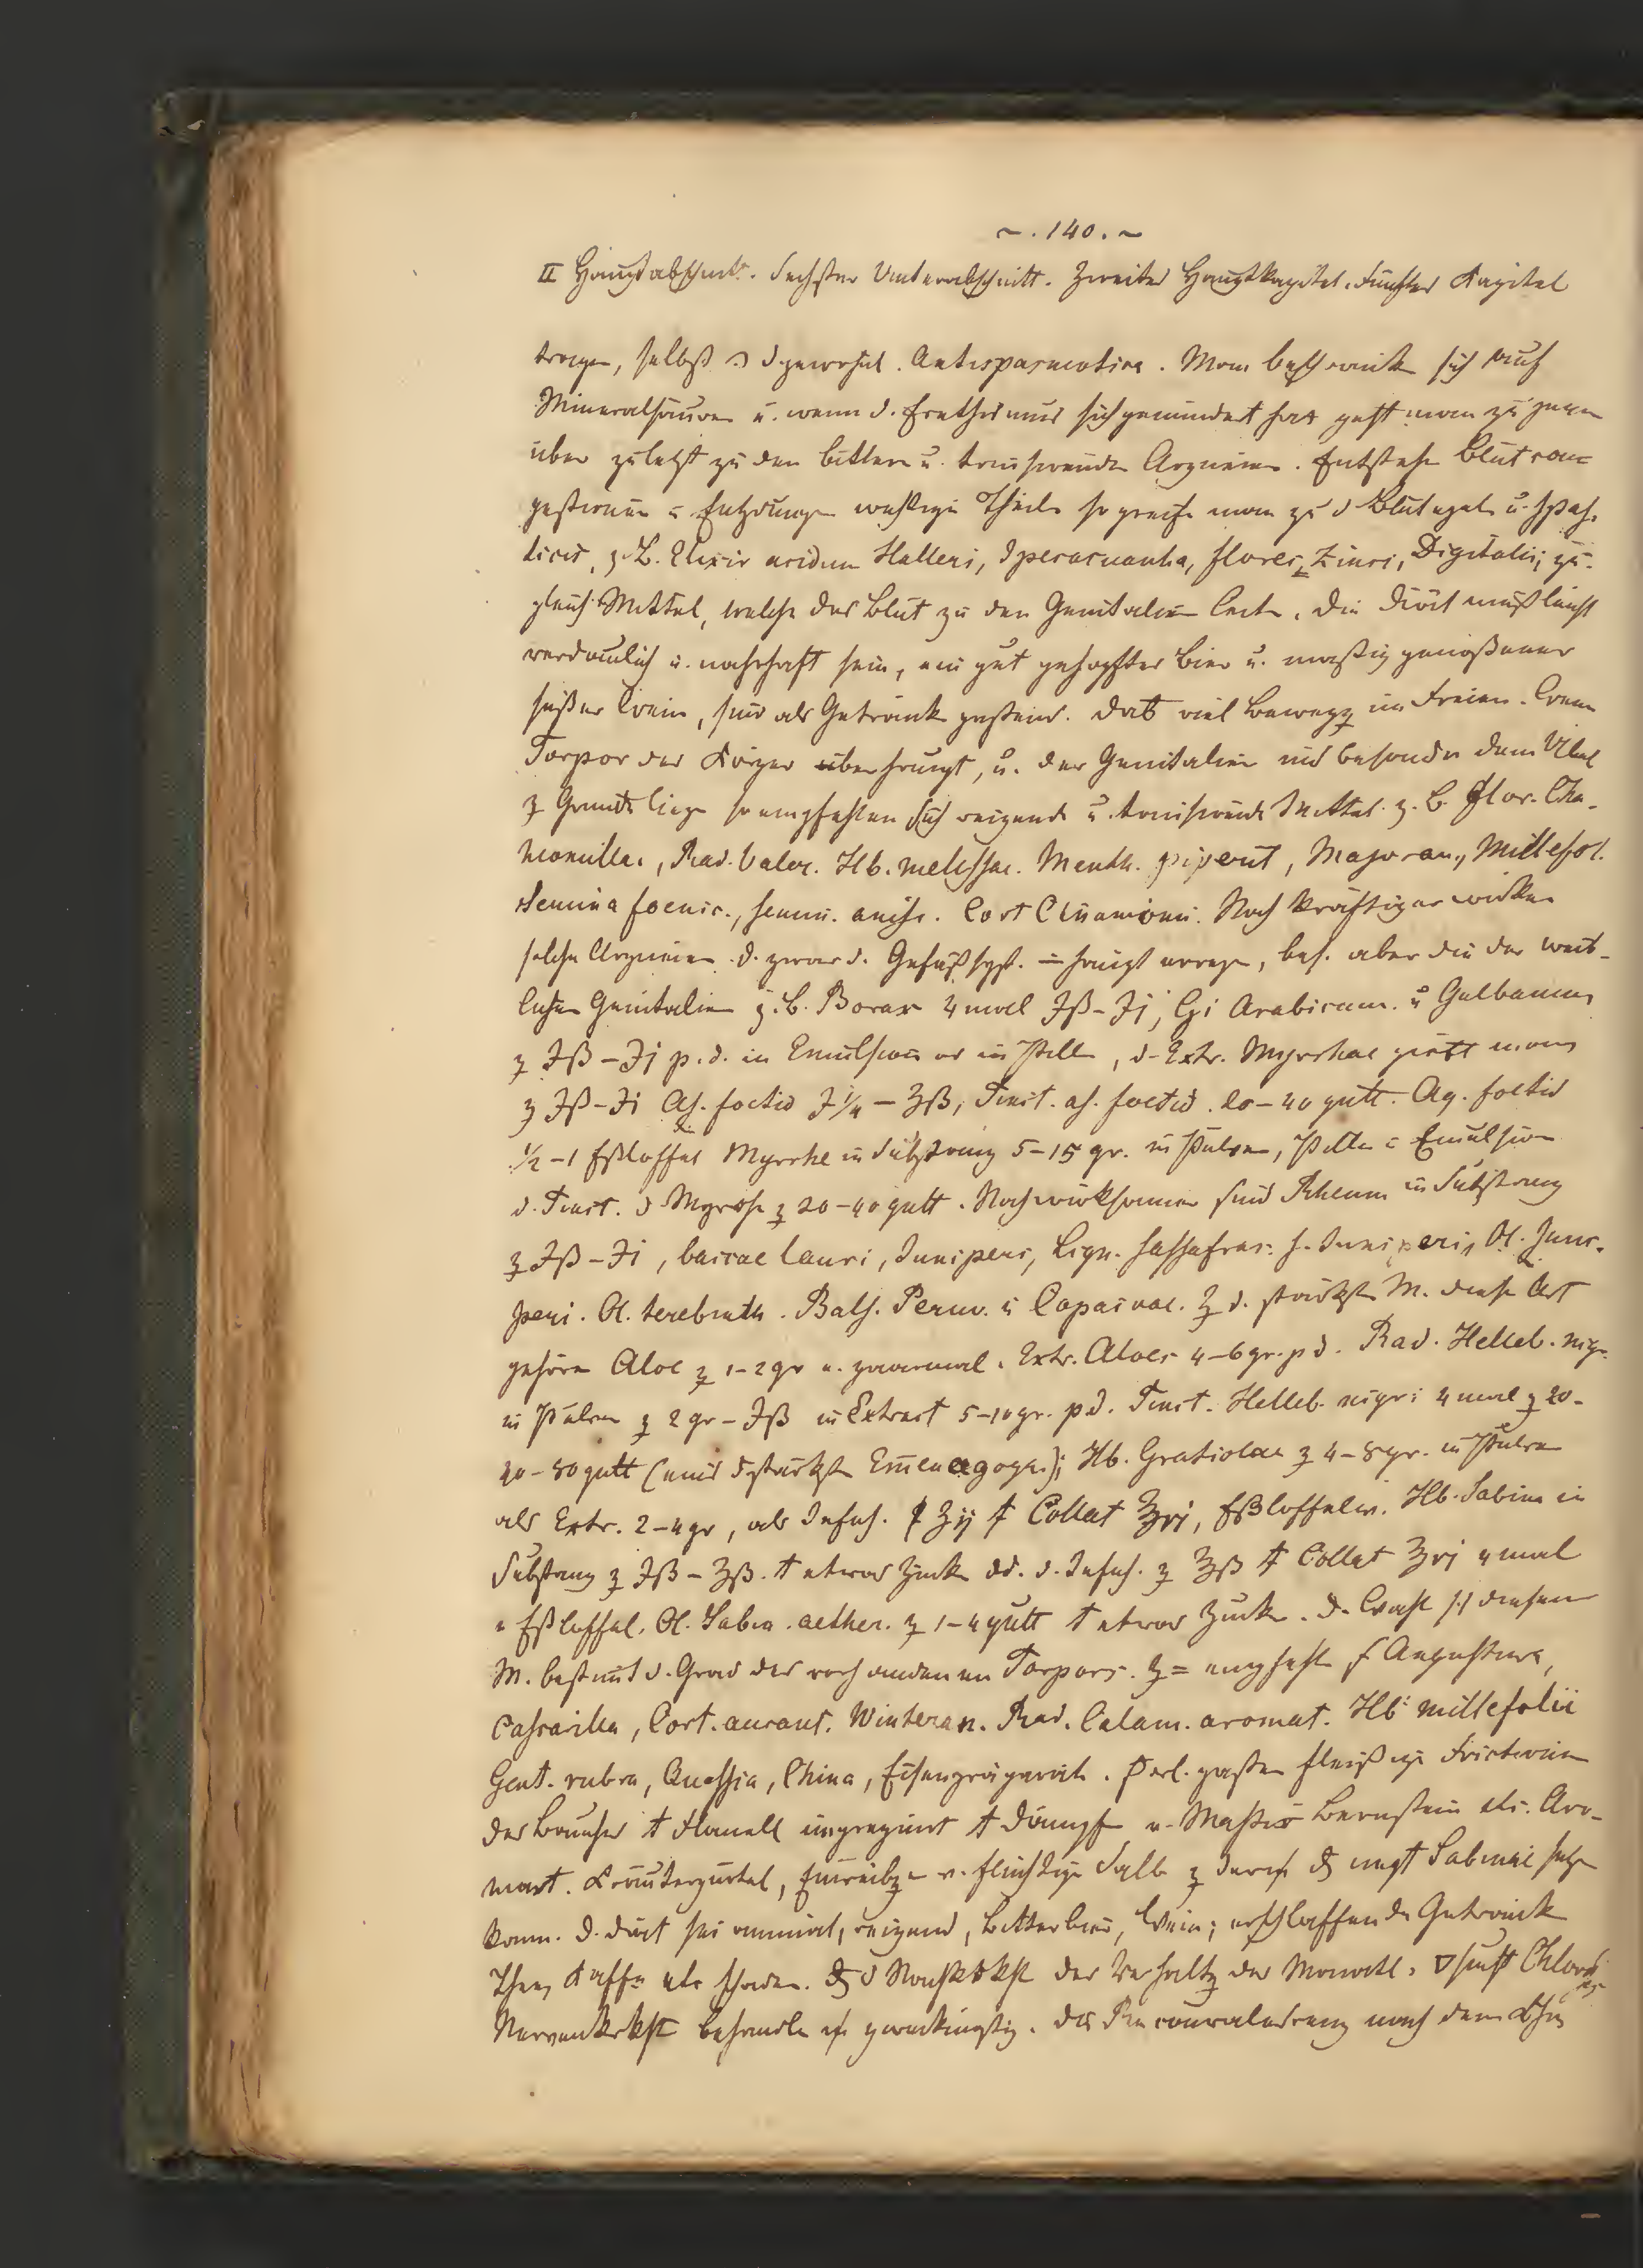 ~ . 140 . ~
II Hauptabschnitt. Sechster Unterabschnitt. Zweites Hauptkapitel. Fünftes Kapitel
tragen, selbst d gewohnl. Antispasmotica. Man beschränke sich auf
Mineralsäuren u. wenn d. Erethismus sich gemindert hat geht man zu
über zuletzt zu den bittern u. tonisirende Arzneien. Entstehe Blutcon=
gestionen Entzdunge wichtige Theile so greife man zu d Blutegel u.
z. B. Elixir acidum Halleri, Ipecacuanha, flores Zinci, Digitalis; zu-
gleich Mittel, welche das Blut zu den Genitalien leite. Die Diät muß leicht
verdaulich u. nahrhaft sein, ein gut gehopftes Bier u. maßig genoßener
süßer Wein, sind als Getränk passend. Dab viel Bewegg im Freien. Wenn
Torpor des Körper überhaupt, u. der Genitalien ins besonder dem Übel
z Grunde liege so empfehlen sich reizende u. tonisirende Mittel. z. B. Flor. Cha-
momillae, Rad. Valer. Hb. melissae. Menth. piperit, Majoran., Millefol.
Semina foenic., semin. anisi. Cort Cinamomi. Noch kräftiger wirken
solche Arzneien d. zwar d. Gefäßsyst. = haupt errege, bes. aber die der weib-
lichen Genitalien z. B. Borax 4 mal ℈ß-℈j, Gi Arabicum. u Galbanum
z ℈ß-℈j p. d. in Emulsion od in Pille, d. Extr. Myrrhae giebt man
z ℈ß-℈i As. foetid ʒ¼ - ʒß, Tinct. as. foetid. 20-40 gutt. Aq. foetid
½-1 Eßloffel Myrrhe in Substanz 5-15 gr. in Pulver, Pille Emulsion
d. Tinct. d Myrrhe z 20-40 gutt. Noch wirksamer sind Rheum in Substanz
z ℈ß-℈i, baccae lauri, Juniperi, Lign. Sassafras. s. Juniperi, Ol. Juni-
peri. Ol. terebinth. Bals. Peruv. u Copaivae. Z d. stärkste M. diese Art
gehören Aloe z 1-2 gr u. zweimal. Extr. Aloes 4-6 gr. p d. Rad. Helleb. nigr.
in Pulver z 2 gr - ℈ß in Extract 5-10 gr. p d. Tinct. Helleb. nigri 4 mal z 20-
40-50 gutt (eins d stärkste Emenagoga); Hb. Gratiolae z 4-8 gr. in Pulver
als Extr. 2-4 gr, als Infus. ʒij Collat ℥vj, Eßloffelw. Hb. Sabina in
Substanz z ℈ß-ʒß. etwas Zucke d. Infus. z ℥ß Collat ℥vj 4 mal
1 Eßloffel. Ol. Sabin. aether. z 1-4 gutt etwas Zucke. D. Wahl diesen
M. bestimt d. Grad des vorhandenen Torpors. Z = empfehle Angustura,
Cascarilla, Cort. aurant. Winteran. Rad. Calam. aromat. Hb millefolii
Gent. rubra, Quassia, China, Eisenpräparate. passen fleißige Frictionen
des Bauches Flanell imprägnirt Dämpfe v. Mastix Bernstein etc. Aro-
mat. Kräutergürtel, Einreibg v. fluchtige Salbe z Sabinae
kann. D. Diät sei animal, reizend, Bitterbier, Wein; erschlaffende Getränk
Thee, Kaffe etc schaden. der Verhaltg der Monatl. Chloros
Nervenkrkht behandle zweckmäßig. Die Reconvalescenz nach dem